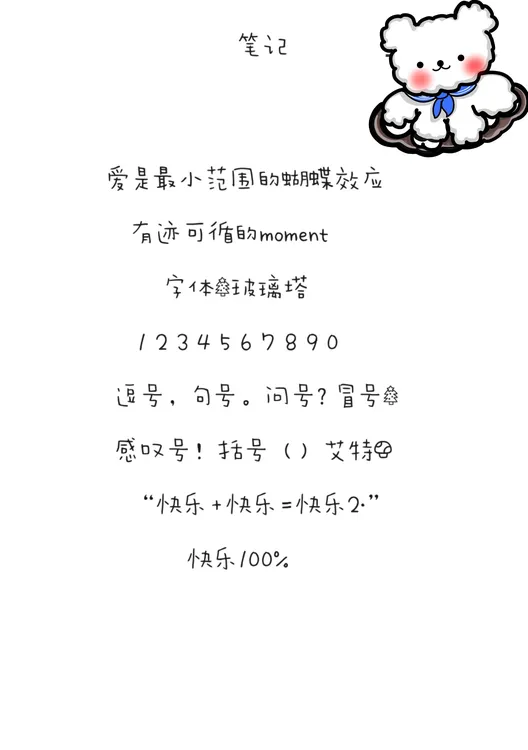 笔记
爱是最小范围的蝴蝶效应
有迹可循的moment
字体🎄玻璃塔
1234567890
逗号，句号。问号？冒号🎄
感叹号！括号（）艾特
“快乐+快乐=快乐2·”
快乐100%